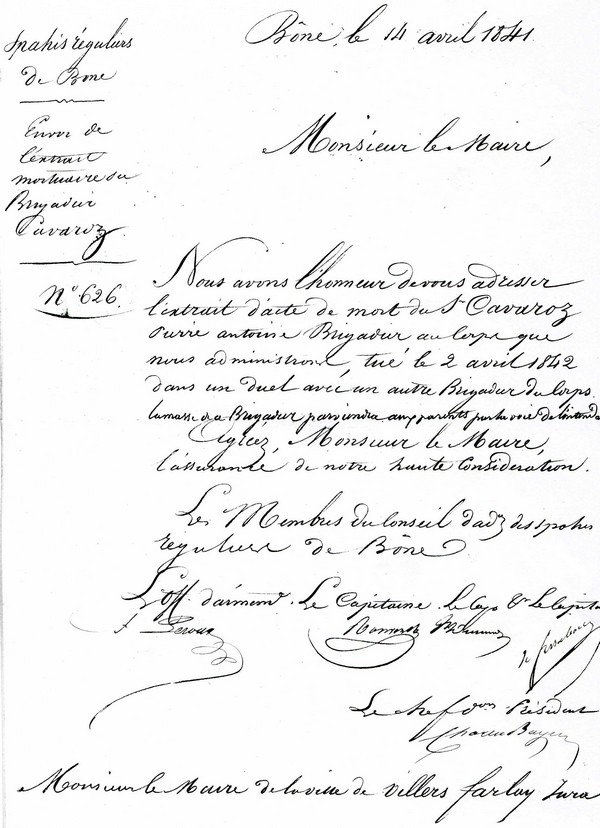 Spahis réguliers
de Bone
Envoi de
l'extrait
mortuaire du
Brigadier
Cavaroz
N° 626.
Bône, le 14 avril 1841
Monsieur le Maire,
Nous avons l'honneur de vous adresser
l'extrait d'acte de mort du Sr Cavaroz
Pierre antoine Brigadier au Corps que
nous administrons, tué le 2 avril 1842
dans un duel avec un autre Brigadier du Corps.
la masse de ce Brigadier parviendra aux parents par la voie de
Agréez, Monsieur le Maire,
l'assurance de notre haute Considération.
Les Membres du Conseil d'adon des spahis
réguliers de Bône
L'off. d'armemt. Le Capitaine. Le Capne Le Capita
Le chef d'Von Président
Monsieur le Maire de la ville de Villers farlay Jura